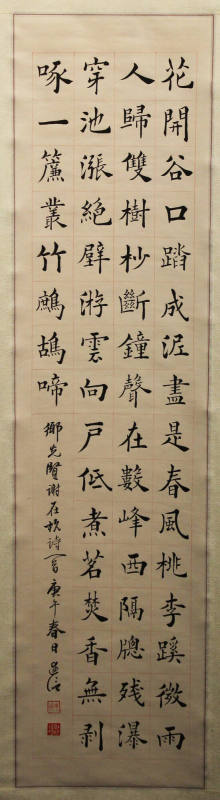 花開谷口踏成泥盡是春風桃李蹊微雨
人歸雙樹杪斷鐘聲在數峰西隔牕残瀑
穿池漲絕壁游雲向戶低煮茗焚香無剥
啄一簾叢竹鷓鴣啼
鄉先賢謝在杭诗一首庚午春日